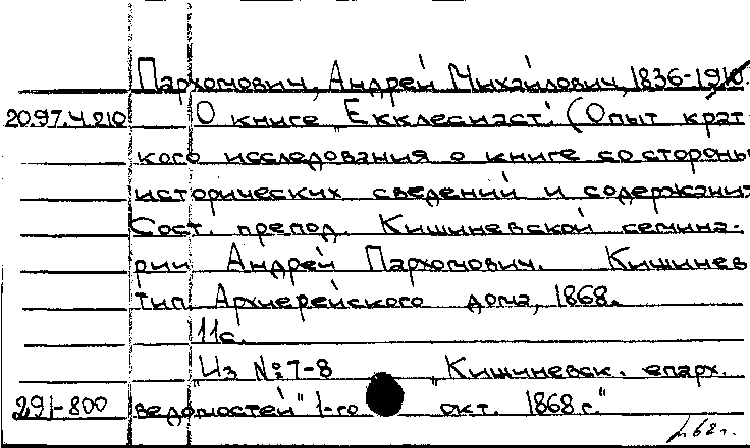 Пархомович, Андрей Михайлович, 1836-1910.
20.97.4.210 О книге "Екклесиаст". (Опыт крат
кого исследования о книге со стороны
исторических сведений и содержани
Сост. препод. Кишиневской семина-
рии Андрей Пархомович. Кишинев
тип. Архиерейского дома, 1868.
11с.
"Из №7-8 "Кишиневск. епарх.
291-800 ведомостей" 1-го окт. 1868 г."